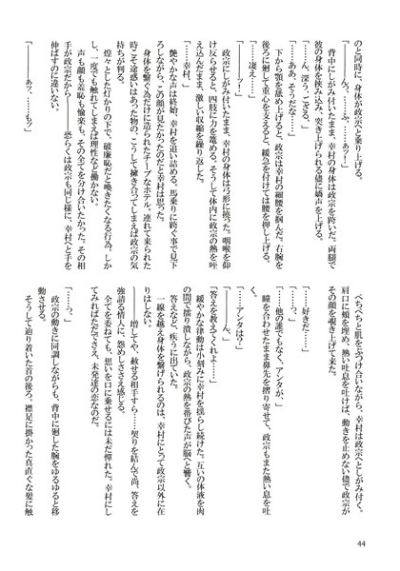 のと同時に、身体が政宗へと乗り上げる。
「――んっ。……ふ、……あッ！」
背中にしがみ付いたまま、幸村は政宗を跨いだ。両脚で
彼の身体を挟み込み、突き上げられる儘に嬌声を上げる。
「……ん、深う、ござる。」
「……ああ、そうだな……」
下から顎を舐め上げると、政宗は幸村の細腰を掴んだ。右腕を
後ろに廻して重心を支えると、緩急を付けては腰を押し上げる。
「……凄え……」
「――ッ！」
政宗にしがみ付いたまま、幸村の身体は弓形に撓った。咽喉を仰
け反らせると、四肢に力を篭める。そうして体内に政宗の熱を咥
え込んだまま、激しい収縮を繰り返した。
「……幸村、」
艶やかな声は終始、幸村を追い詰める。馬乗りに跨ぐ事で見下
ろしながら、この顔が見たかったのだと幸村は思った。
身体を繋ぐ為だけに造られたチープなホテル。連れて来られた
時こそ途惑いはあった物の、こうして擁き合ってしまえば政宗の気
持ちが判る。
煌々とした灯かりの下で、破廉恥だと喚きたくなる行為。しか
し、一度でも触れてしまえば理性など働かない。
声も顔も羞恥も愉楽も、その全てを分け合いたかった。その相
手が政宗だから――恐らくは政宗も同じ様に、幸村へと手を
伸ばすのに違いない。
「あッ、……もっ……」
ぺちぺちと肌をぶつけ合いながら、幸村は政宗へとしがみ付く。
肩口に頬を埋め、熱い吐息を吐けば、動きを止めない儘で政宗が
その顔を覗き上げて来た。
「……好きだ……」
「……っ、」
「……他の誰でもなく、アンタが、」
瞳を合わせたまま鼻先を擦り寄せて、政宗もまた熱い息を吐
く。
「……アンタは？」
「――ん、」
「答えを教えてくれよ……」
緩やかな律動は小刻みに幸村を揺らし続けた。互いの体液を肉
の間で擂り潰しながら、政宗の熱を帯びた声が脳へと響く。
答えなど、疾うに出ていた。
一線を越え身体を繋げられるのは、幸村にとって政宗以外に在
りはしない。
――増してや、赦せる相手すら……。契りを結んで尚、答えを
強請る情人に、怨めしささえ感じる。
全てを委ねても、想いを口に乗せるには未だ憚れた。幸村にし
てみればただでさえ、未発達の恋なのだ。
「……っ、」
政宗の動きに同調しながらも、背中に廻した腕をゆるゆると移
動させる。
そうして辿り着いた首の後ろ。襟足に掛かった真直ぐな髪に触
44